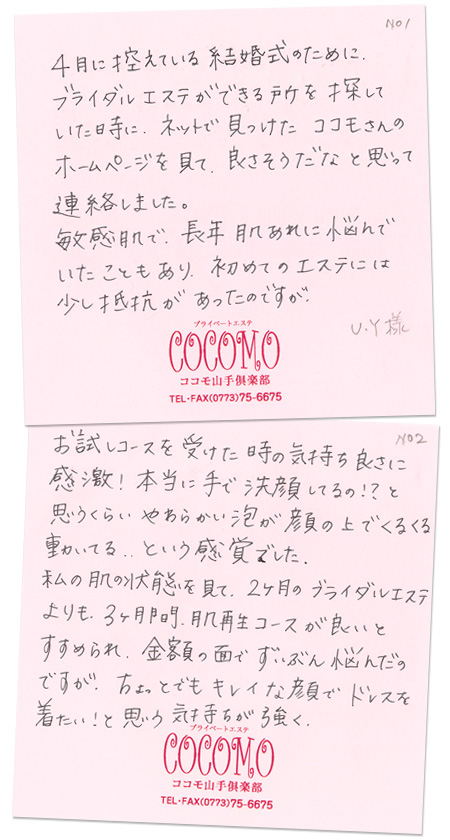 NO1
4月に控えている結婚式のために、
ブライダルエステができる所を探して
いた時に、ネットで見つけたココモさんの
ホームページを見て、良さそうだなと思って
連絡しました。
敏感肌で、長年肌あれに悩んで
いたこともあり、初めてのエステには
少し抵抗があったのですが、
U.Y様
プライベートエステ
COCOMO
ココモ山手倶楽部
TEL・FAX(0773)75-6675
NO2
お試しコースを受けた時の気持ち良さに
感激!本当に手で洗顔してるの!?と
思うくらいやわらかい泡が顔の上でくるくる
動いてる..という感覚でした。
私の肌の状態を見て、2ヶ月のブライダルエステ
よりも、3ヶ月間、肌再生コースが良いと
すすめられ、金額の面でずいぶん悩んだの
ですが、ちょっとでもキレイな顔でドレスを
着たい!と思う気持ちが強く、
プライベートエステ
COCOMO
ココモ山手倶楽部
TEL・FAX(0773)75-6675